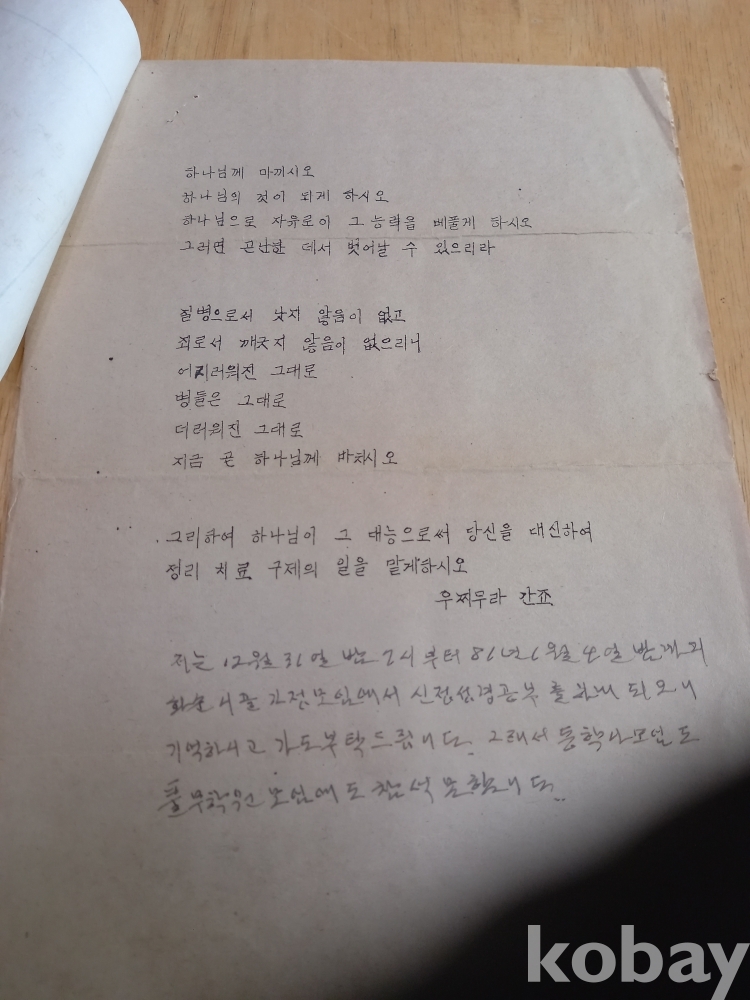 하나님께 마끼시오
하나님의 것이 되게 하시오
하나님으로 자유로이 그 능력을 베풀게 하시오
그러면 곤난한 데서 벗어날 수 있으리라
질병으로서 낫지 않음이 없고
죄로서 깨긋지 않음이 없으리니
어지러워진 그대로
병들은 그대로
더러워진 그대로
지금 곧 하나님께 바치시오
그리하여 하나님이 그 대능으로써 당신을 대신하여
정리 치료 구제의 일을 맡게하시오
우찌무라 간죠
저는 12월 31일 밤 부터 81년 1월 4일 밤까지
시골 가정모임에서 신정성경공부를 하게 되오니
기억하시고 기도부탁드립니다. 그래서 모임도
풀무학원 모임에도 참석 못합니다.
kobay